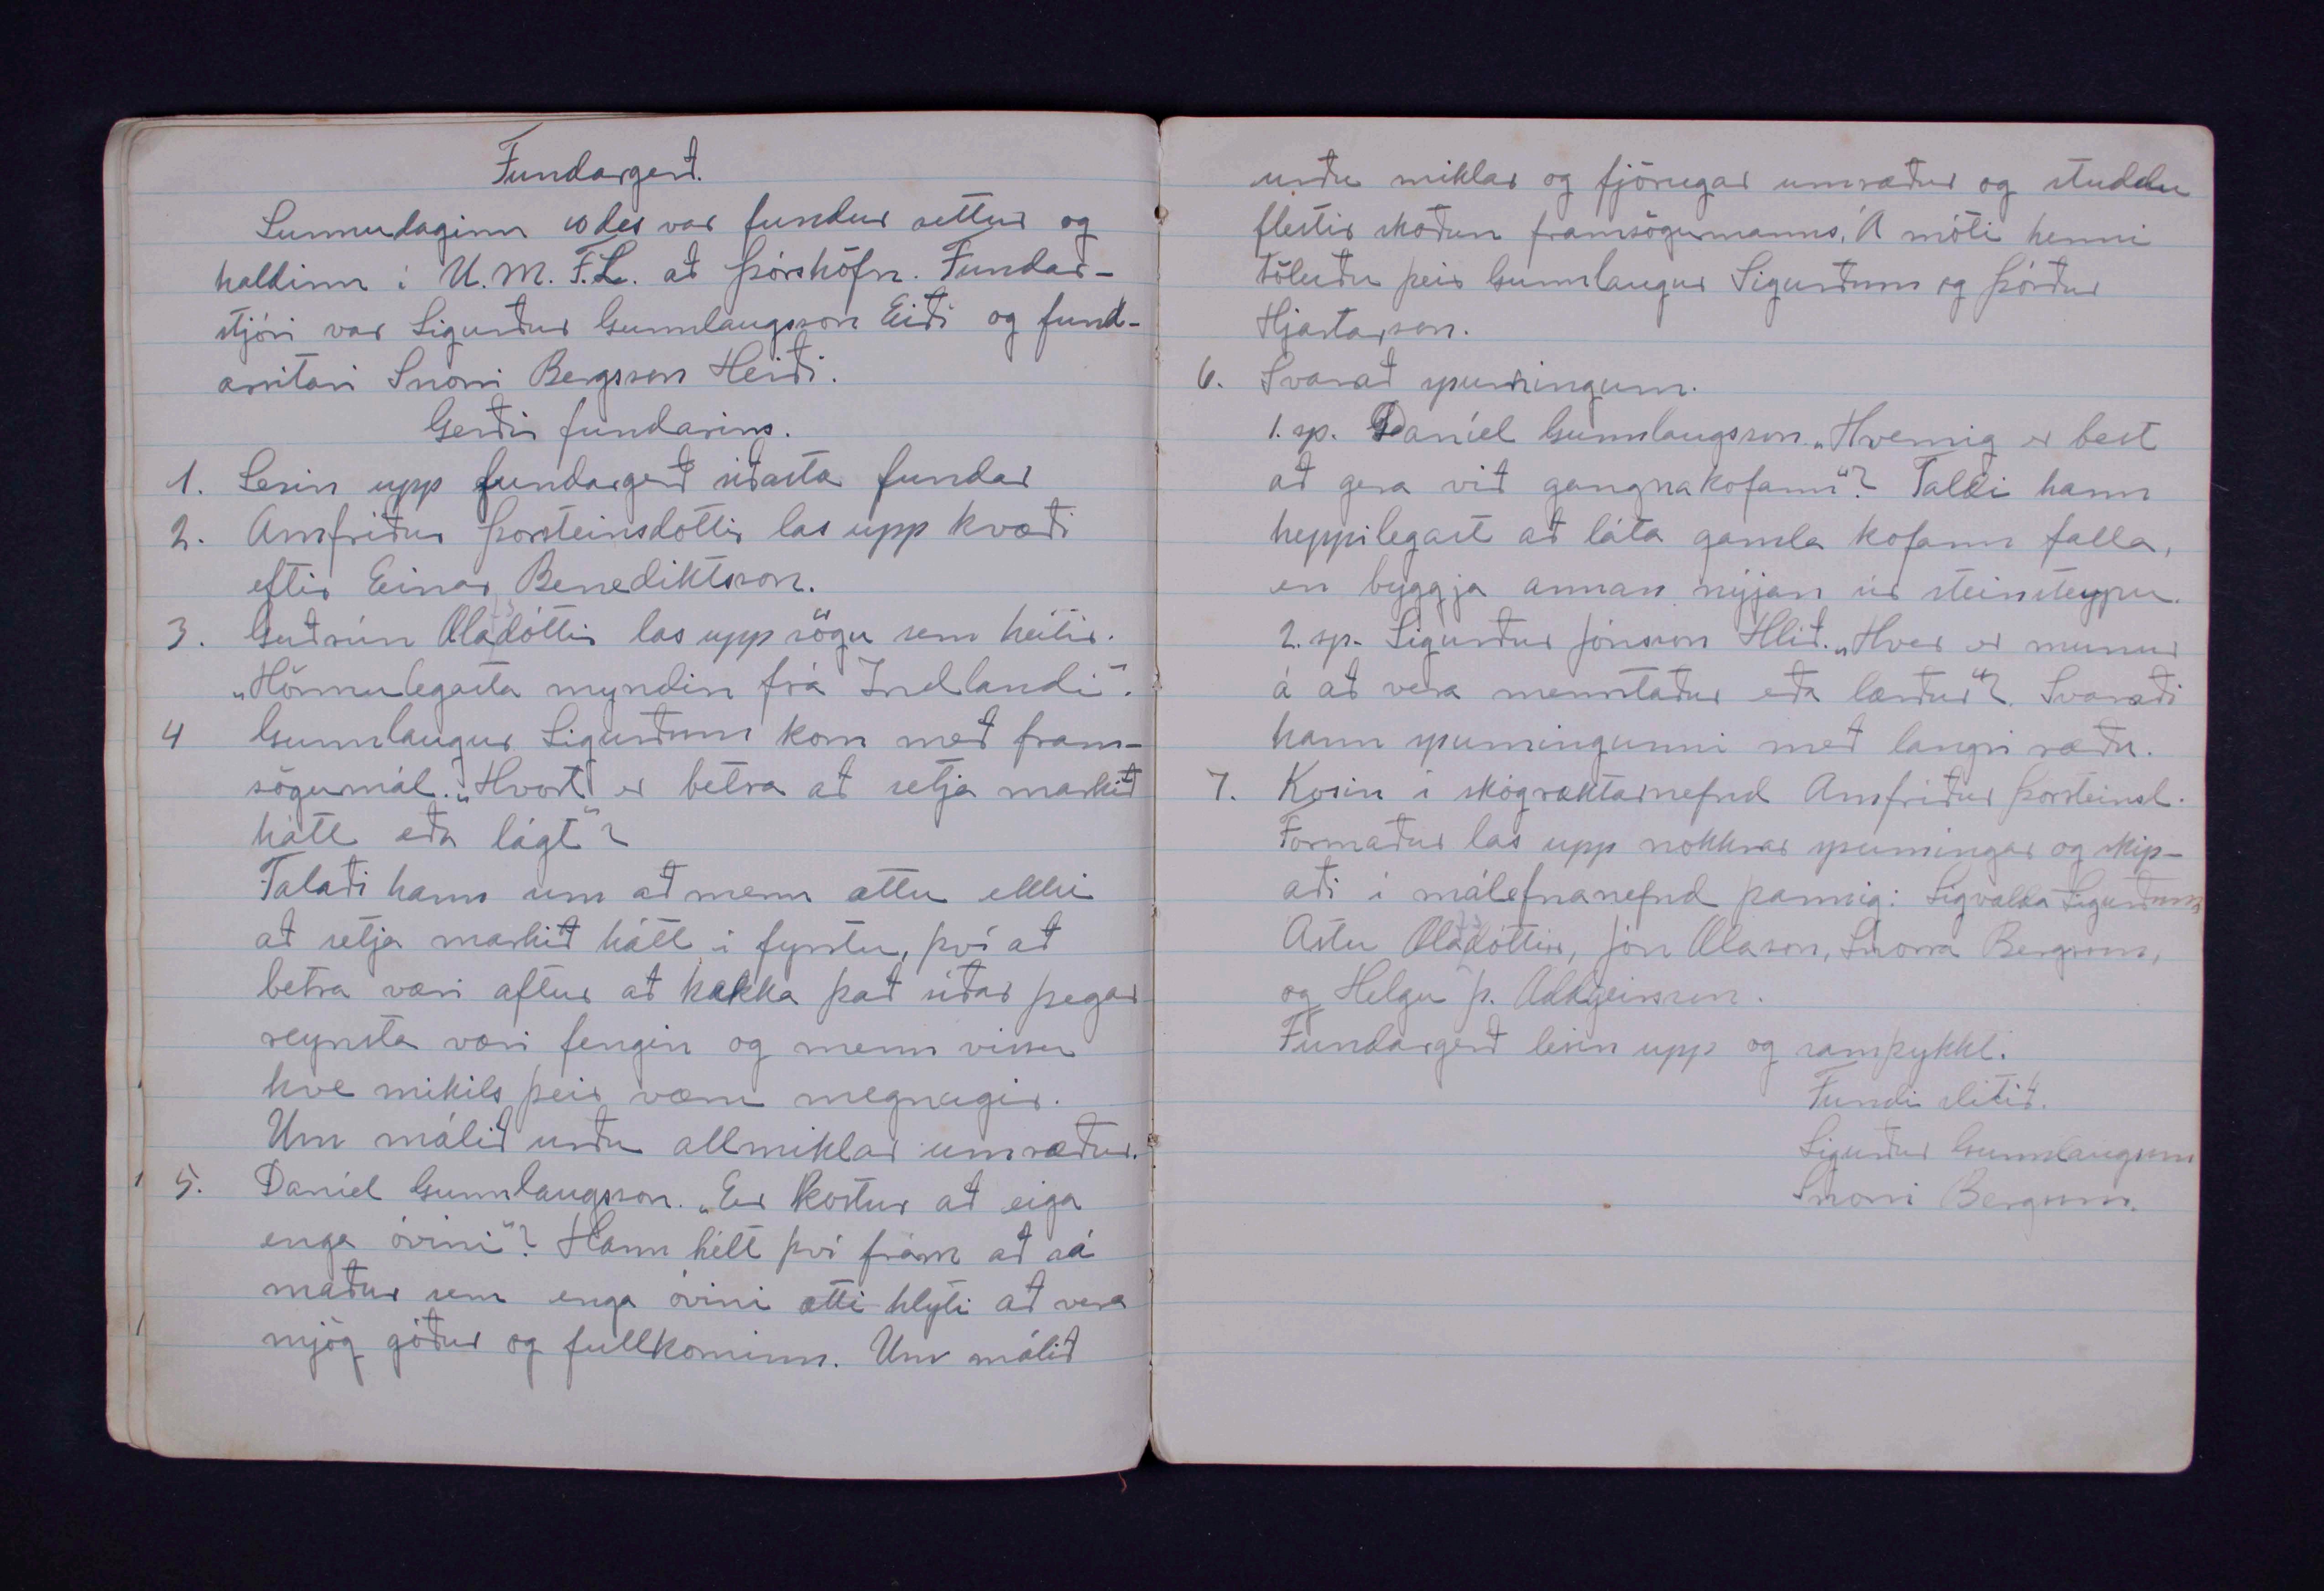 Fundargerð.
Sunnudaginn 10 des var fundur settur og
haldinn í U.M.F.L. að Þórshöfn. Fundar-
stjóri var Sigurður Gunnlaugsson Eiði og fund-
arritari Snorri Bergsson Heiði.
Gerðir fundarins.
1. Lesin upp fundargerð síðasta fundar
2. Arnfríður Þorsteinsdóttir las upp kvæði
eftir Einar Benediktsson.
3. Guðrún Óladóttir las upp sögu sem heitir.
„Hörmulegasta myndin frá Indlandi".
4 Gunnlaugur Sigurðsson kom með fram-
sögumál. „Hvort er betra að setja markið
hátt eða lágt"?
Talaði hann um að menn ættu ekki
að setja markið hátt í fyrstu, því að
betra væri aftur að hækka það síðar þegar
reynsla væri fengin og menn vissu
hve mikils þeir væru megnugir.
Um málið urðu allmiklar umræður.
5. Daníel Gunnlaugsson. „Er kostur að eiga
enga óvini"? Hann hélt því fram að sá
maður sem enga óvini ætti hlyti að vera
mjög góður og fullkominn. Um málið
urðu miklar og fjörugar umræður og studdu
flestir skoðun framsögumanns. Á móti henni
töluðu þeir Gunnlaugur Sigurðsson og Þórður
Hjartarson.
6. Svarað spurningum.
1. sp. Daníel Gunnlaugsson „Hvernig er best
að gera við gangnakofann"? Taldi hann
heppilegast að láta gamla kofann falla,
en byggja annan nýjan úr steinsteypu.
2. sp. Sigurður Jónsson Hlíð. „Hver er munur
á að vera menntaður eða lærður"? Svaraði
hann spurningunni með langri ræðu.
7. Kosin í skógræktarnefnd Arnfríður Þorsteinsd.
Formaður las upp nokkrar spurningar og skip-
aði í málefnanefnd þannig: Sigvalda Sigurðsson,
Ástu Óladóttir, Jón Ólason, Snorra Bergsson,
og Helgu Þ. Aðalgeirsson.
Fundargerð lesin upp og samþykkt.
Fundi slitið.
Sigurður Gunnlaugsson
Snorri Bergsson.